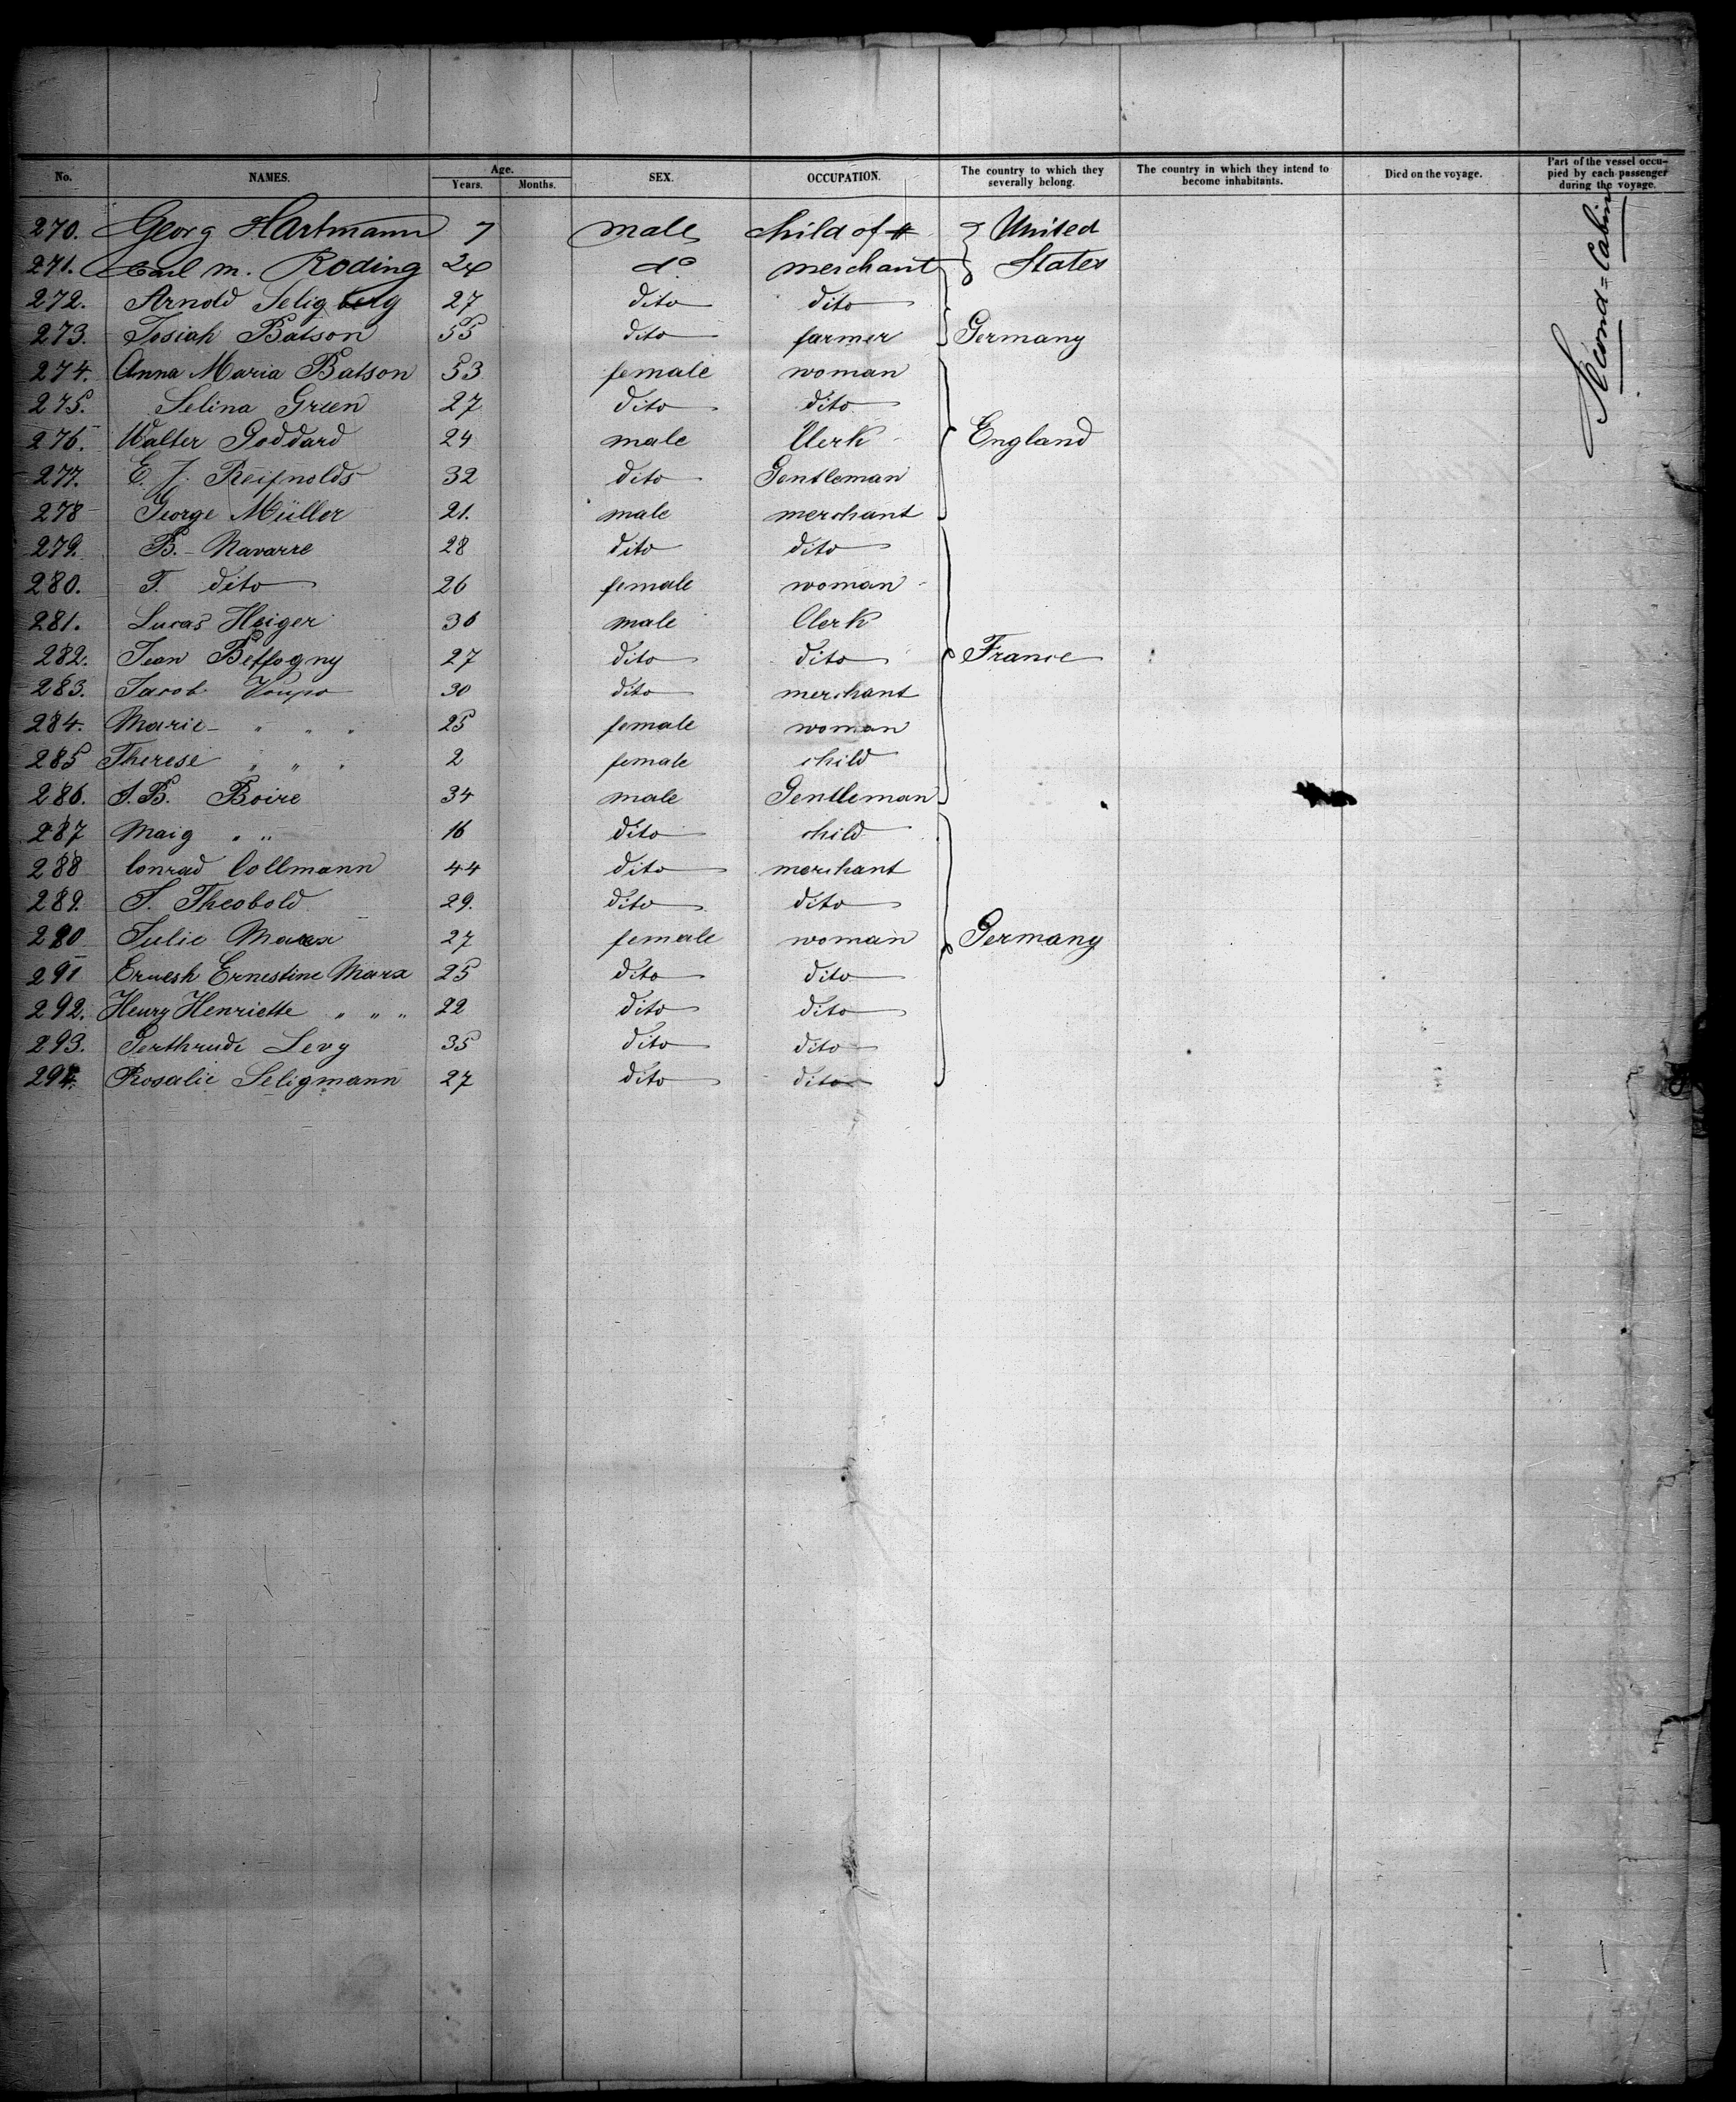 No. NAMES. Age. Years. Months. SEX. OCCUPATION. The country to which they severally belong. The country in which they intend to become inhabitants. Died on the voyage. Part of the vessel occupied by each passenger during the voyage.
Second=Cabin
270. Georg Hartmann 7 male child of United
271. Carl M. Roding 24 do merchant States
272. Arnold Seligberg 27 dito dito
273. Josiah Batson 55 dito farmer Germany
274. Anna Maria Batson 53 female woman
275. Selina Green 27 dito dito
276. Walter Goddard 24 male Clerk England
277. E. J. Reijnolds 32 dito Gentleman
278 George Müller 21. male merchant
279. B. Navarre 28 dito dito
280. T. dito 26 female woman
281. Lucas Heiger 36 male Clerk
282. Jean 27 dito dito France
283. Jacob 30 dito merchant
284. Marie " " " 25 female woman
285 Therese " " " 2 female child
286. J. B. Boire 34 male Gentleman
287 Maig " " 16 dito child
288 Conrad Collmann 44 dito merchant
289. S. Theobold 29. dito dito
290 Julie Marx 27 female woman Germany
291 Ernesh Ernestine Marx 25 dito dito
292. Henry Henriette " " " 22 dito dito
293. Gerthrude Levy 35 dito dito
294. Rosalie Seligmann 27 dito dito